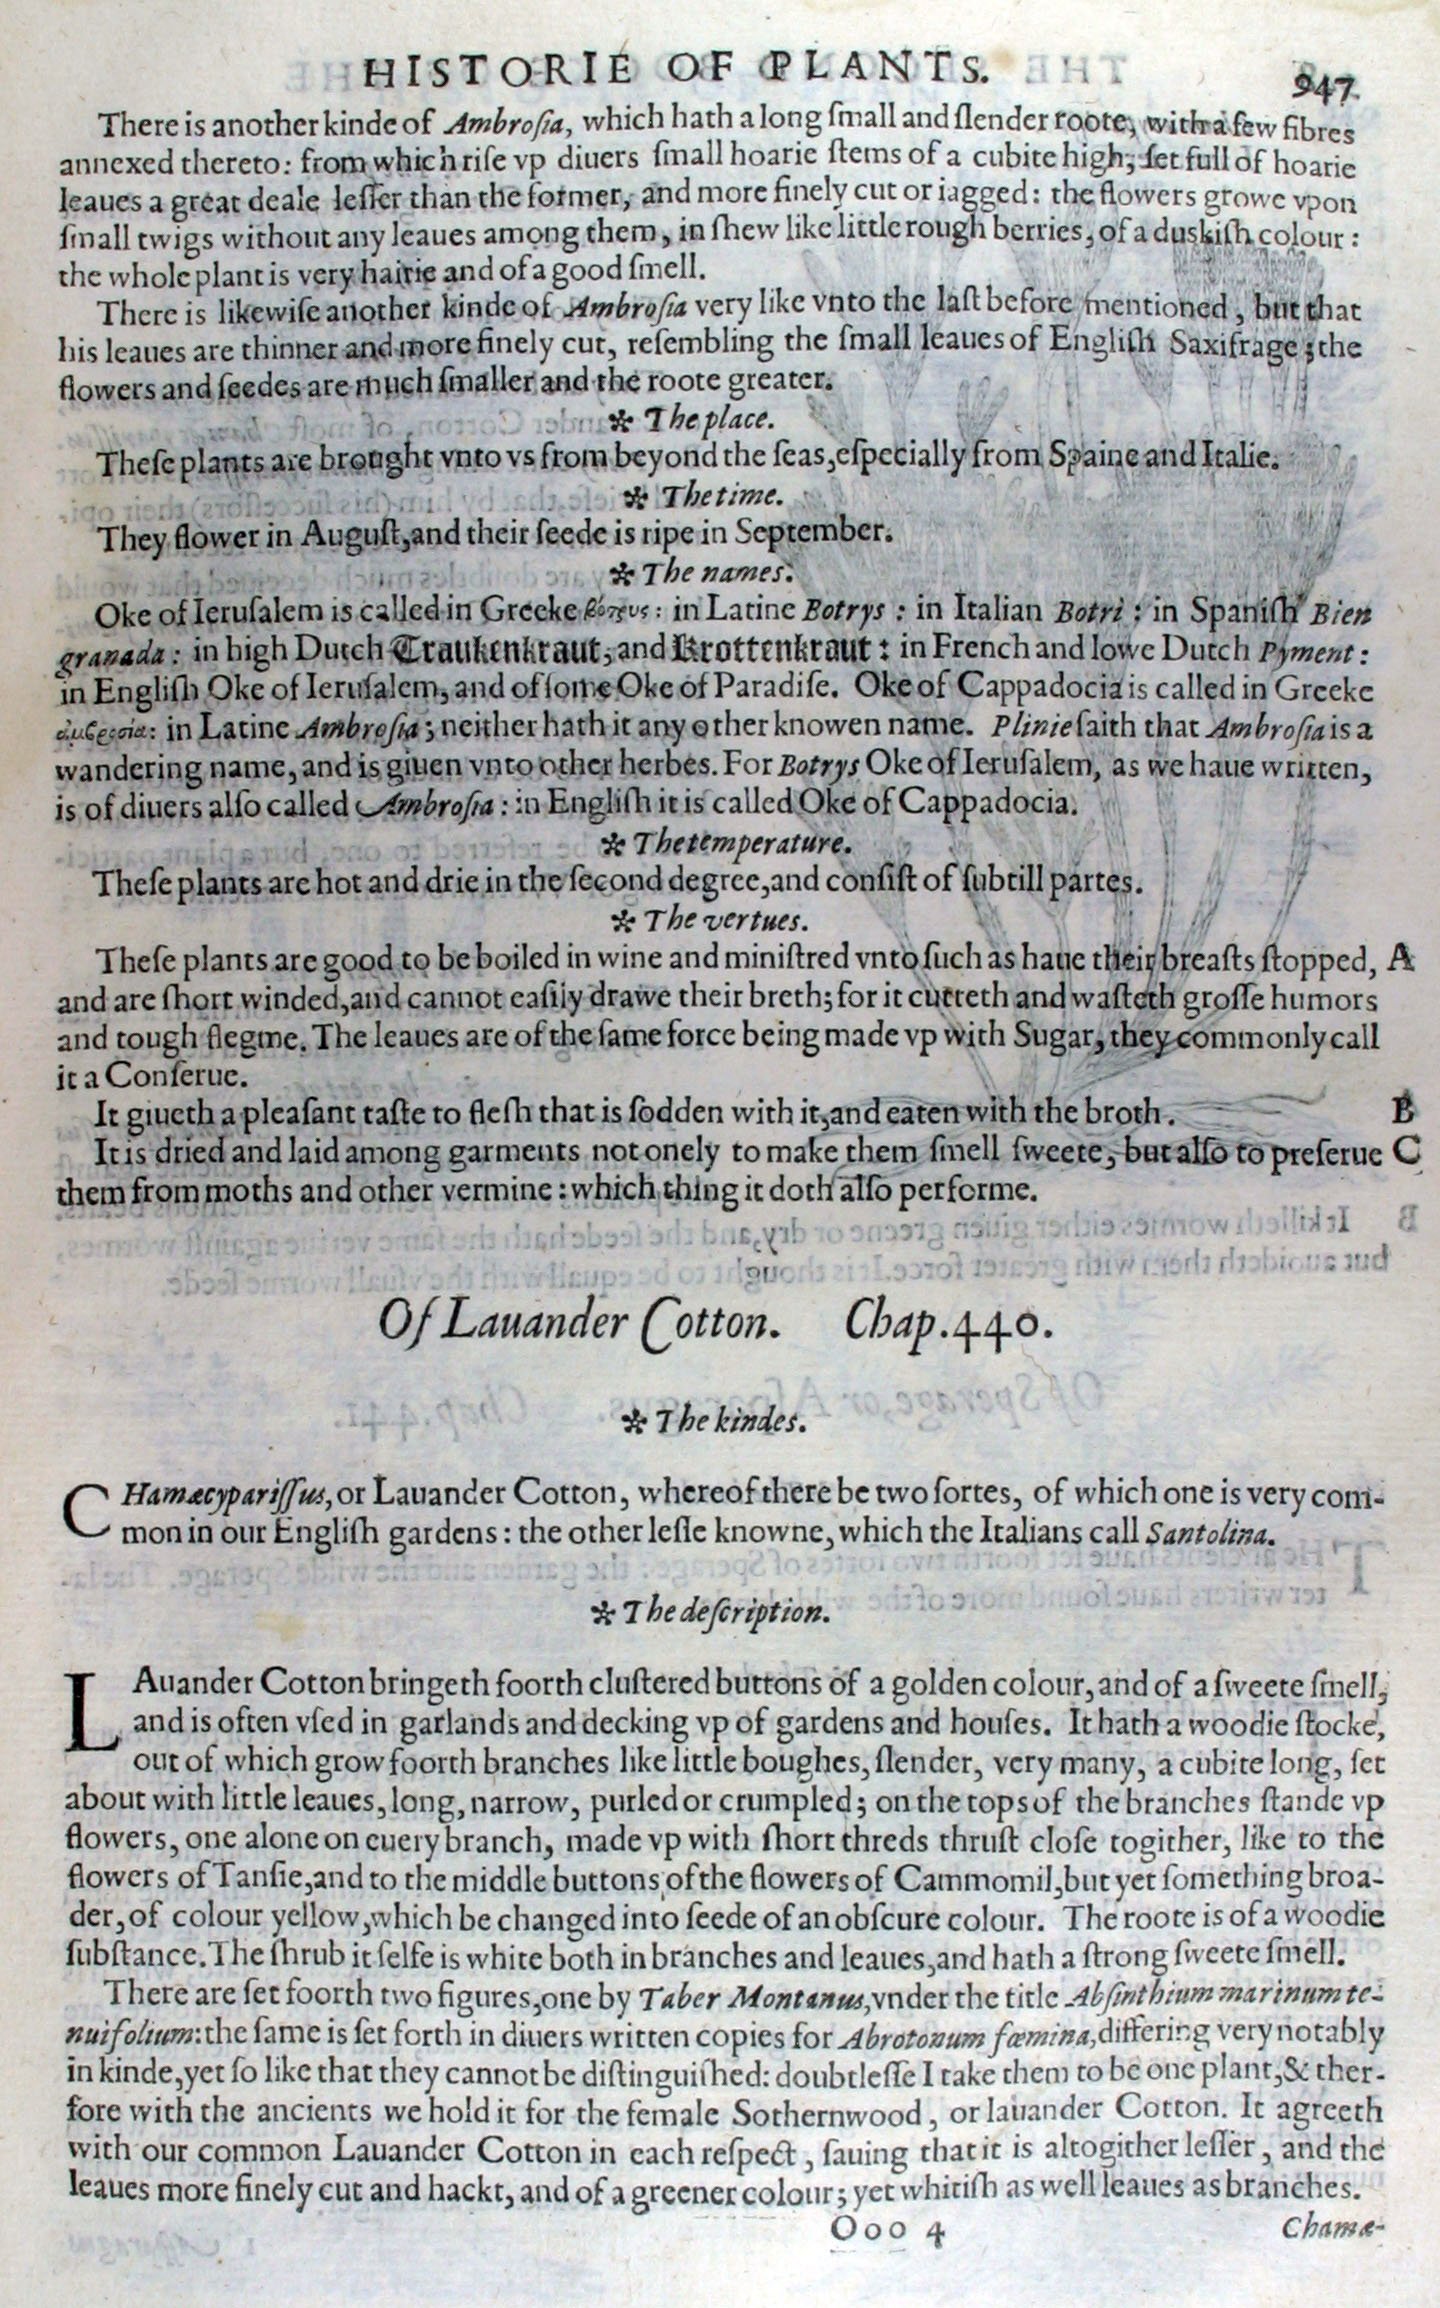 HISTORIE OF PLANTS. 947
There is another kinde of Ambroſia, which hath a long ſmall and ſlender roote, with a few fibres
annexed thereto: from which riſe vp diuers ſmall hoarie ſtems of a cubite high, ſet full of hoarie
leaues a great deale leſſer than the former, and more finely cut or iagged: the flowers growe vpon
ſmall twigs without any leaues among them, in ſhew like little rough berries, of a duskiſh colour:
the whole plant is very hairie and of a good ſmell.
There is likewiſe another kinde of Ambroſia very like vnto the laſt before mentioned, but that
his leaues are thinner and more finely cut, reſembling the ſmall leaues of Engliſh Saxifrage; the
flowers and ſeedes are much ſmaller and the roote greater.
✻ The place.
Theſe plants are brought vnto vs from beyond the ſeas, eſpecially from Spaine and Italie.
✻ The time.
They flower in Auguſt, and their ſeede is ripe in September.
✻ The names.
Oke of Ieruſalem is called in Greeke βότρυς: in Latine Botrys: in Italian Botri: in Spaniſh Bien
granada: in high Dutch Traubenkraut, and Krottenkraut: in French and lowe Dutch Pyment:
in Engliſh Oke of Ieruſalem, and of ſome Oke of Paradiſe. Oke of Cappadocia is called in Greeke
ἀμβροσία: in Latine Ambroſia; neither hath it any other knowen name. Plinie ſaith that Ambroſia is a
wandering name, and is giuen vnto other herbes. For Botrys Oke of Ieruſalem, as we haue written,
is of diuers alſo called Ambroſia: in Engliſh it is called Oke of Cappadocia.
✻ The temperature.
Theſe plants are hot and drie in the ſecond degree, and conſiſt of ſubtill partes.
✻ The vertues.
Theſe plants are good to be boiled in wine and miniſtred vnto ſuch as haue their breaſts ſtopped, A
and are ſhort winded, and cannot eaſily drawe their breth; for it cutteth and waſteth groſſe humors
and tough flegme. The leaues are of the ſame force being made vp with Sugar, they commonly call
it a Conſerue.
It giueth a pleaſant taſte to fleſh that is ſodden with it, and eaten with the broth. B
It is dried and laid among garments not onely to make them ſmell ſweete, but alſo to preſerue C
them from moths and other vermine: which thing it doth alſo performe.
Of Lauander Cotton. Chap. 440.
✻ The kindes.
CHamæcypariſſus, or Lauander Cotton, whereof there be two ſortes, of which one is very com-
mon in our Engliſh gardens: the other leſſe knowne, which the Italians call Santolina.
✻ The deſcription.
LAuander Cotton bringeth foorth cluſtered buttons of a golden colour, and of a ſweete ſmell,
and is often vſed in garlands and decking vp of gardens and houſes. It hath a woodie ſtocke,
out of which grow foorth branches like little boughes, ſlender, very many, a cubite long, ſet
about with little leaues, long, narrow, purled or crumpled; on the tops of the branches ſtande vp
flowers, one alone on euery branch, made vp with ſhort threds thruſt cloſe togither, like to the
flowers of Tanſie, and to the middle buttons of the flowers of Cammomil, but yet ſomething broa-
der, of colour yellow, which be changed into ſeede of an obſcure colour. The roote is of a woodie
ſubſtance. The ſhrub it ſelfe is white both in branches and leaues, and hath a ſtrong ſweete ſmell.
There are ſet foorth two figures, one by Taber Montanus, vnder the title Abſinthium marinum te-
nuifolium: the ſame is ſet forth in diuers written copies for Abrotonum fœmina, differing very notably
in kinde, yet ſo like that they cannot be diſtinguiſhed: doubtleſſe I take them to be one plant, & ther-
fore with the ancients we hold it for the female Sothernwood, or lauander Cotton. It agreeth
with our common Lauander Cotton in each reſpect, ſauing that it is altogither leſſer, and the
leaues more finely cut and hackt, and of a greener colour; yet whitiſh as well leaues as branches.
Ooo 4 Chamæ-